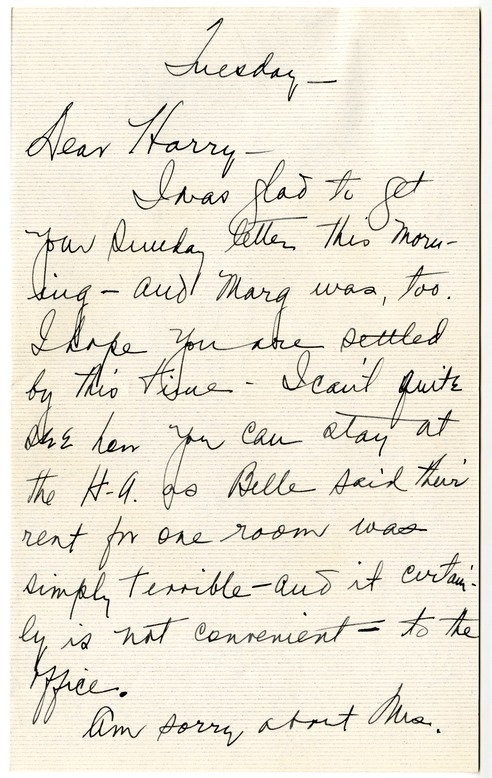 Tuesday—
Dear Harry—
I was glad to get
your Sunday letter this morn-
ing – and Marg was, too.
I hope you are settled
by this time - I can't quite
see how you can stay at
the H-A. as Belle said their
rent for one room was
simply terrible – and it certain-
ly is not convenient – to the
office.
Am sorry about Mrs.